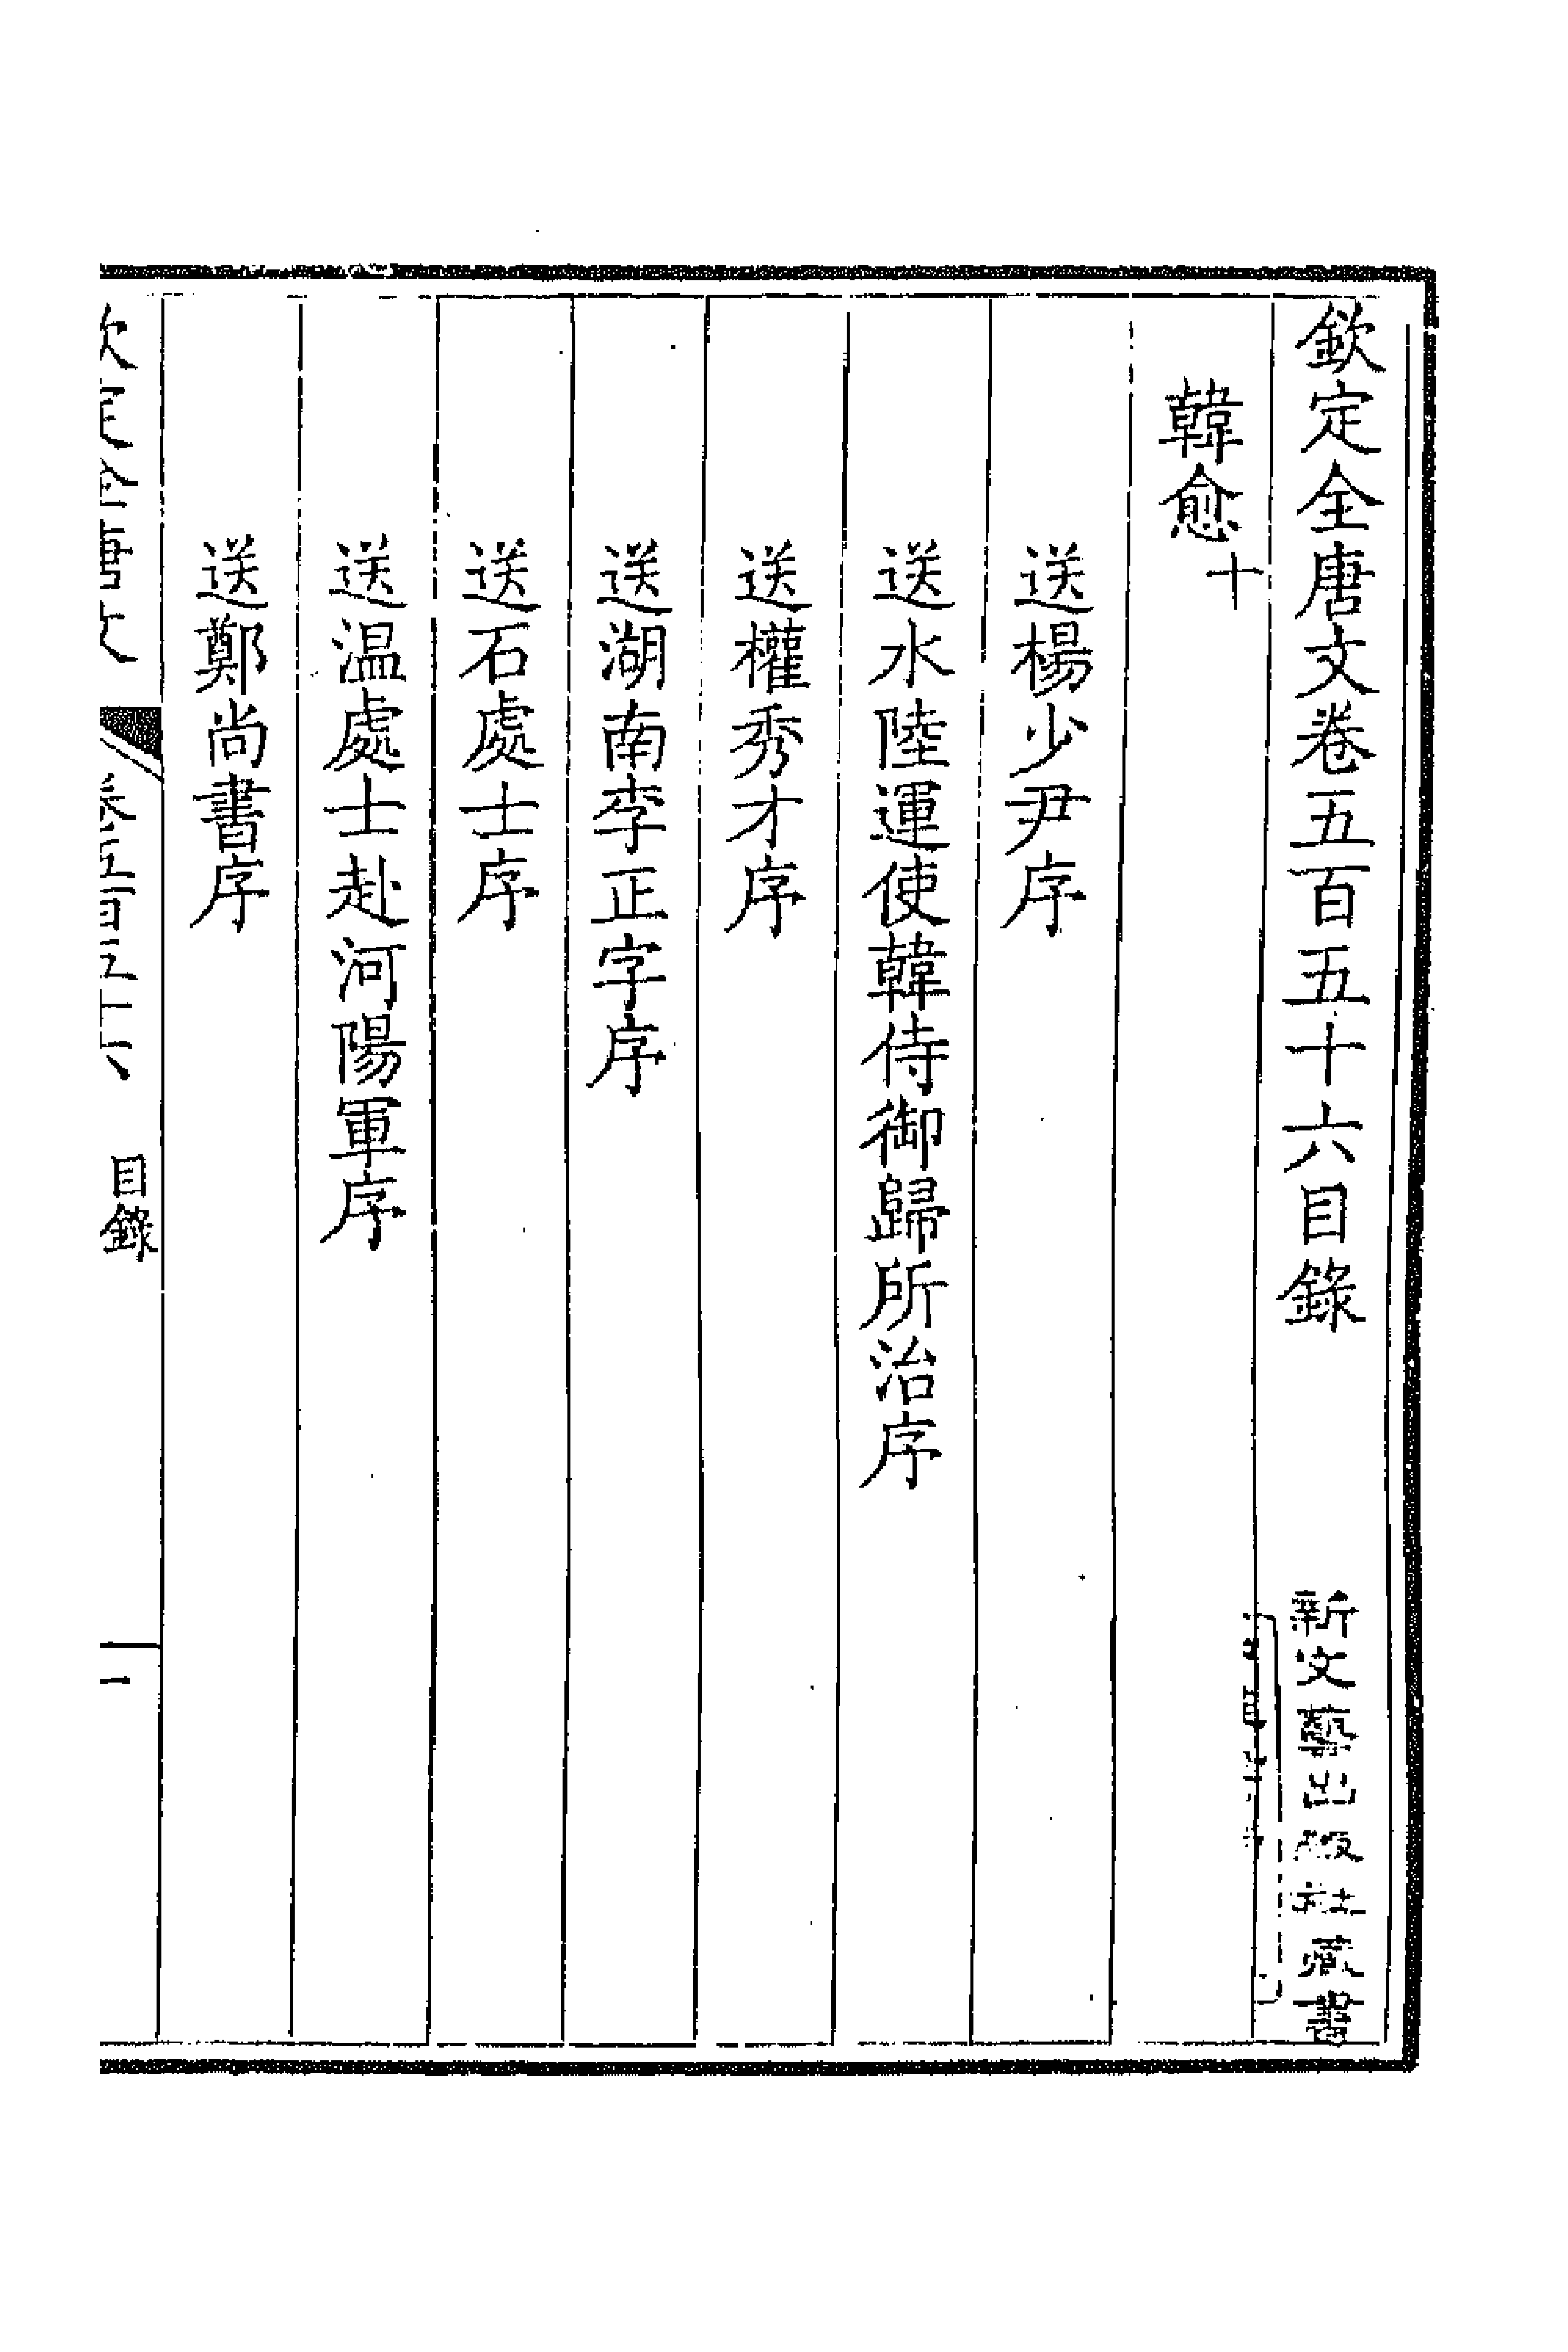 欽定全唐文卷五百五十六目錄
新文藝出版社藏書
韓愈十
送楊少尹序
送水陸運使韓侍御歸所治序
送權秀才序
送湖南李正字序
送石處士序
送温處士赴河陽軍序
送鄭尚書序
欽定全唐文 卷五百五十六 目錄 一